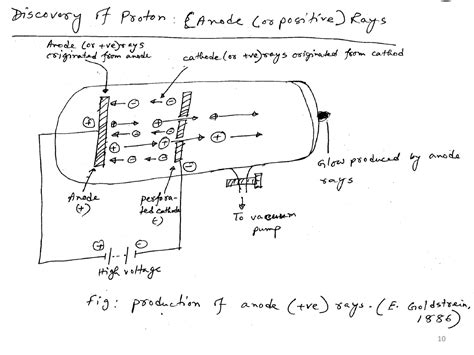 Discovery of Proton : (Anode (or positive) Rays
Anode (or +ve) rays
originated from anode
cathode (or +ve) rays originated from cathod
Glow produced by anode
rays
Anode
(+)
perfora-
ted cathode
(-)
To vacuum
pump
High voltage
Fig: production of anode (+ve) rays. (E. Goldstrein,
1886)
10